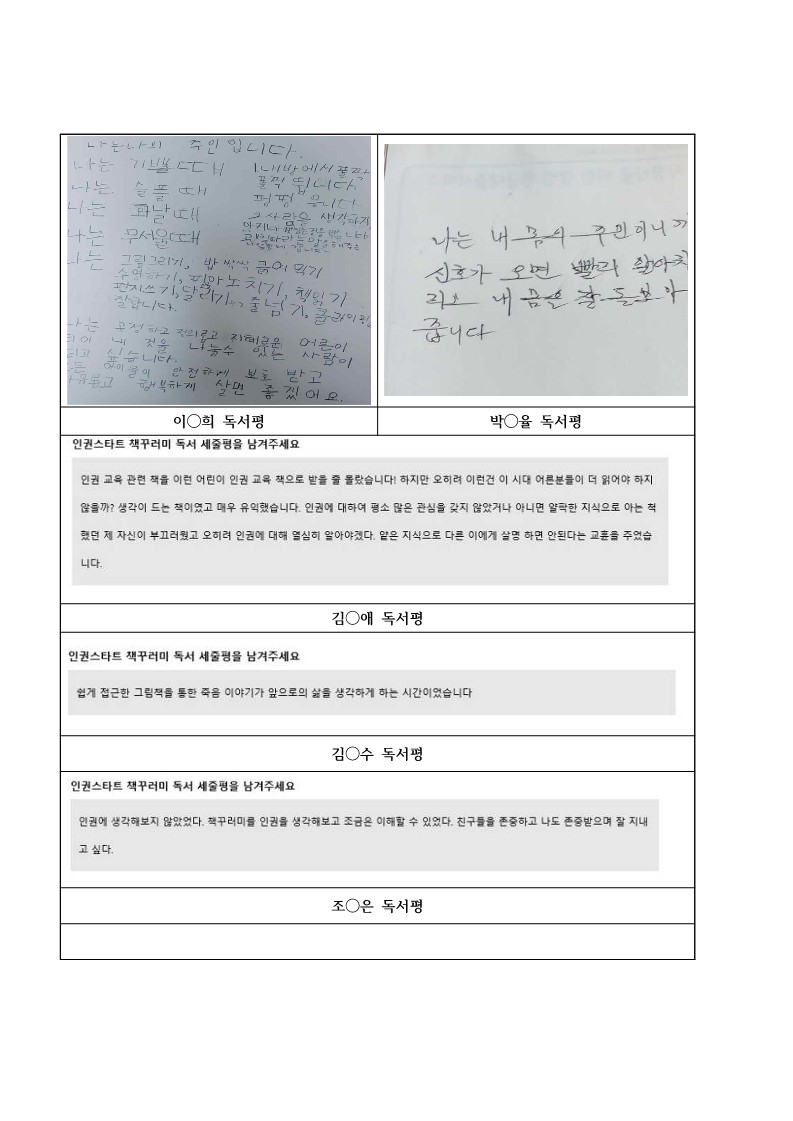 나는 나의 주인입니다.
나는 기쁠 때 내 방에서 폴짝
폴짝 뜁니다
나는 슬플 때 펑펑 웁니다
나는 화날 때 사람을 생각하지
나는 무서울 때
나는 그림그리기, 밥 싹싹 긁어 먹기
수영하기, 피아노 치기, 책읽기
편지쓰기, 달리기, 줄넘기,
잘합니다.
나는 공정하고 정의롭고 지혜로운 어른이
되어 내 것을 나눌수 있는 사람이
되고 싶습니다.
모든 아이들이 안전하게 보호 받고
자유롭고 행복하게 살면 좋겠어요.
나는 내 몸의 주인이니까
신호가 오면 빨리 알아차
리고 내 몸을 잘 돌보아
줍니다
이○희 독서평
박○율 독서평
인권스타트 책꾸러미 독서 세줄평을 남겨주세요
인권 교육 관련 책을 이런 어린이 인권 교육 책으로 받을 줄 몰랐습니다! 하지만 오히려 이런건 이 시대 어른분들이 더 읽어야 하지
않을까? 생각이 드는 책이였고 매우 유익했습니다. 인권에 대하여 평소 많은 관심을 갖지 않았거나 아니면 얄팍한 지식으로 아는 척
했던 제 자신이 부끄러웠고 오히려 인권에 대해 열심히 알아야겠다. 얕은 지식으로 다른 이에게 살명 하면 안된다는 교훈을 주었습
니다.
김○애 독서평
인권스타트 책꾸러미 독서 세줄평을 남겨주세요
쉽게 접근한 그림책을 통한 죽음 이야기가 앞으로의 삶을 생각하게 하는 시간이었습니다
김○수 독서평
인권스타트 책꾸러미 독서 세줄평을 남겨주세요
인권에 생각해보지 않았었다. 책꾸러미를 인권을 생각해보고 조금은 이해할 수 있었다. 친구들을 존중하고 나도 존중받으며 잘 지내
고 싶다.
조○은 독서평